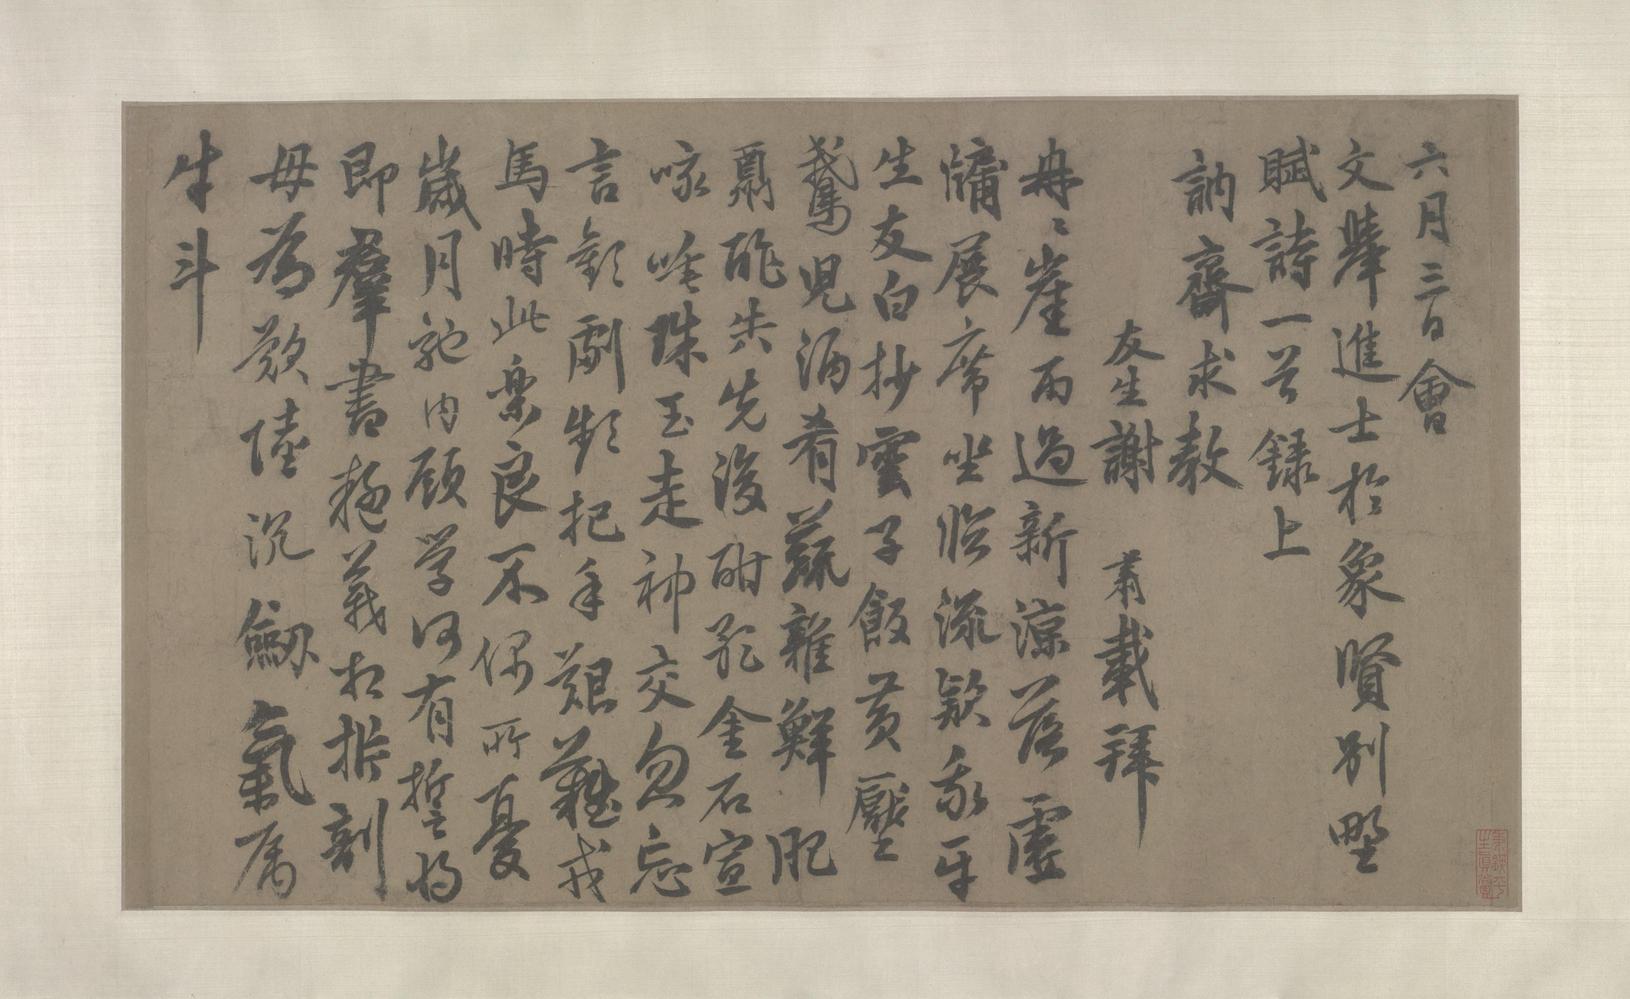 六月三日會
文舉進士於象賢別墅
賦詩一首錄上
訥齋求教
友生謝肅載拜
冉〻崖雨過新涼落虛
牖展席坐臨流歘我牙
生友白抄雲子飯黃壓
鵞兒酒肴蔬雜鮮肥
酢共先後酣歌金石宣
咏唾珠玉走神交忽忘
言歡劇頻把手艱難戎
馬時此樂良不偶所憂
歲月馳內顧學何有誓將
即羣書義相掊剖
毋為歎陸沉劒氣属
牛斗